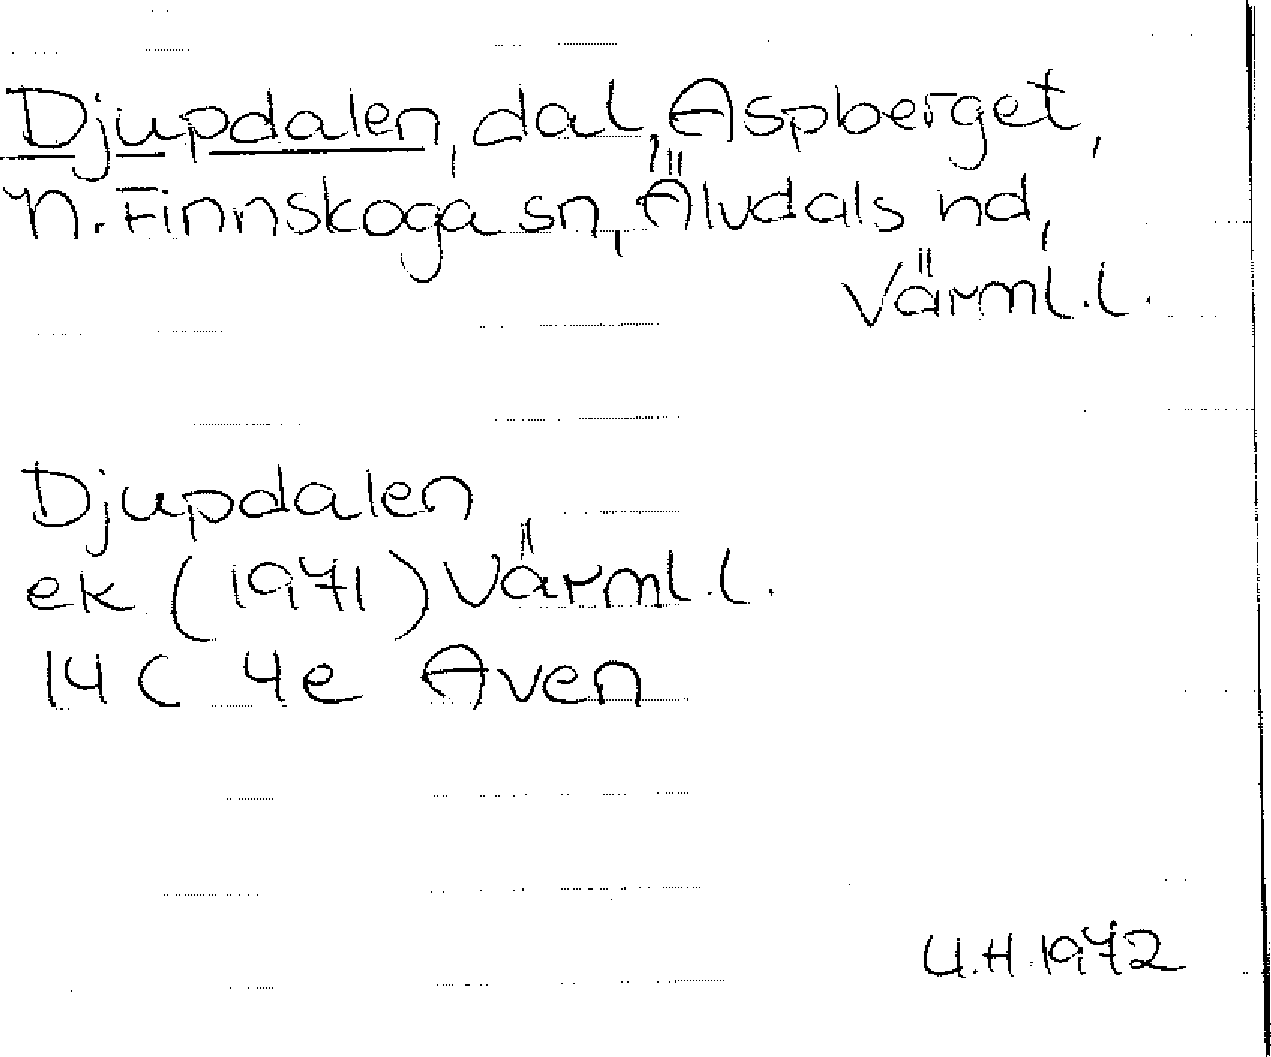 Djupdalen, dal, Aspberget,
N. Finnskoga sn, Älvdals hd,
Värml. l.
Djupdalen
ek (1971) Värml. l.
14 C 4e Aven
U.H. 1972